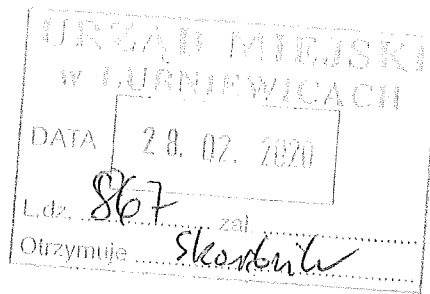 URZĄD MIEJSKI
w LUBNIEWICACH
DATA 28. 02. 2020
L.dz. 867 zał.
Otrzymuje Skarbnik